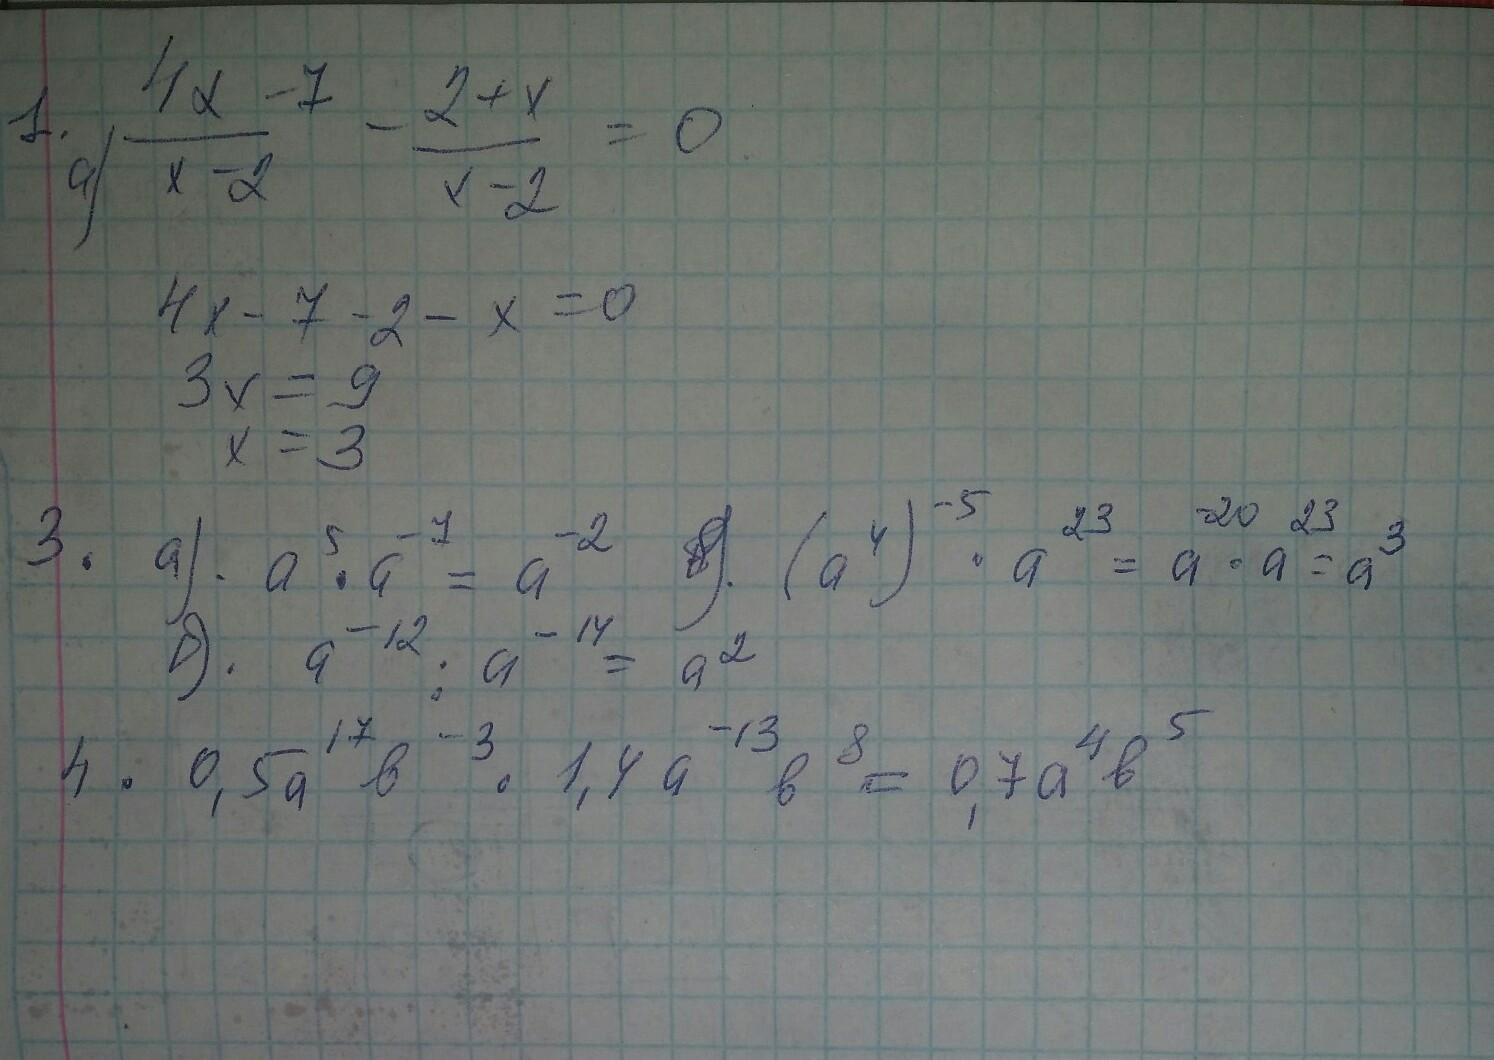 1. а) (4x - 7)/(x - 2) - (2 + x)/(x - 2) = 0
4x - 7 - 2 - x = 0
3x = 9
x = 3
3. а). a⁵ · a⁻⁷ = a⁻² в). (a⁴)⁻⁵ · a²³ = a⁻²⁰ · a²³ = a³
б). a⁻¹² : a⁻¹⁴ = a²
4. 0,5a¹⁷b⁻³ · 1,4a⁻¹³b⁸ = 0,7a⁴b⁵